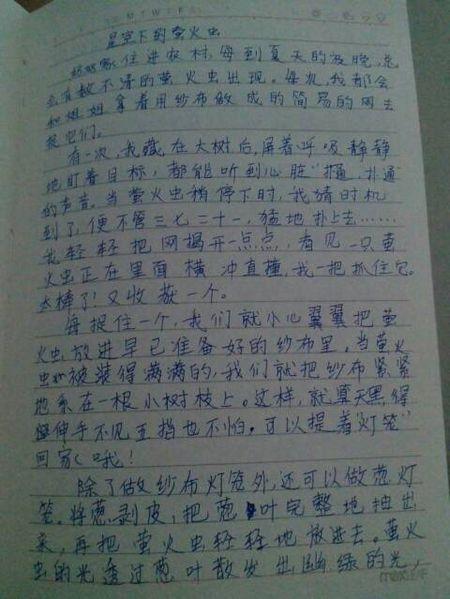 M T W T F S
星空下的萤火虫
家住进农村,每到夏天的夜晚,总
会有数不清的萤火虫出现。每次,我都会
和姐姐拿着用纱布做成的简易的网去
捉它们。
有一次,我藏在大树后,屏着呼吸静静
地盯着目标,都能听到心脏“扑通,扑通”
的声音。当萤火虫稍停下时,我猜时机
到了,便不管三七二十一,猛地扑上去……
我轻轻把网揭开一点点,看见一只萤
火虫正在里面横冲直撞,我一把抓住它。
太棒了!又收获一个。
每捉住一个,我们就小心翼翼把萤
火虫放进早已准备好的纱布里。当萤火
虫被装得满满的,我们就把纱布紧紧
地系在一根小树枝上。这样,就算天黑得
伸手不见五指也不怕。可以提着“灯笼”
回家哦!
除了做纱布灯笼外,还可以做葱灯
笼。将葱剥皮,把葱叶完整地抽出
来,再把萤火虫轻轻地放进去。萤火
虫的光透过葱叶散发出幽绿的光,